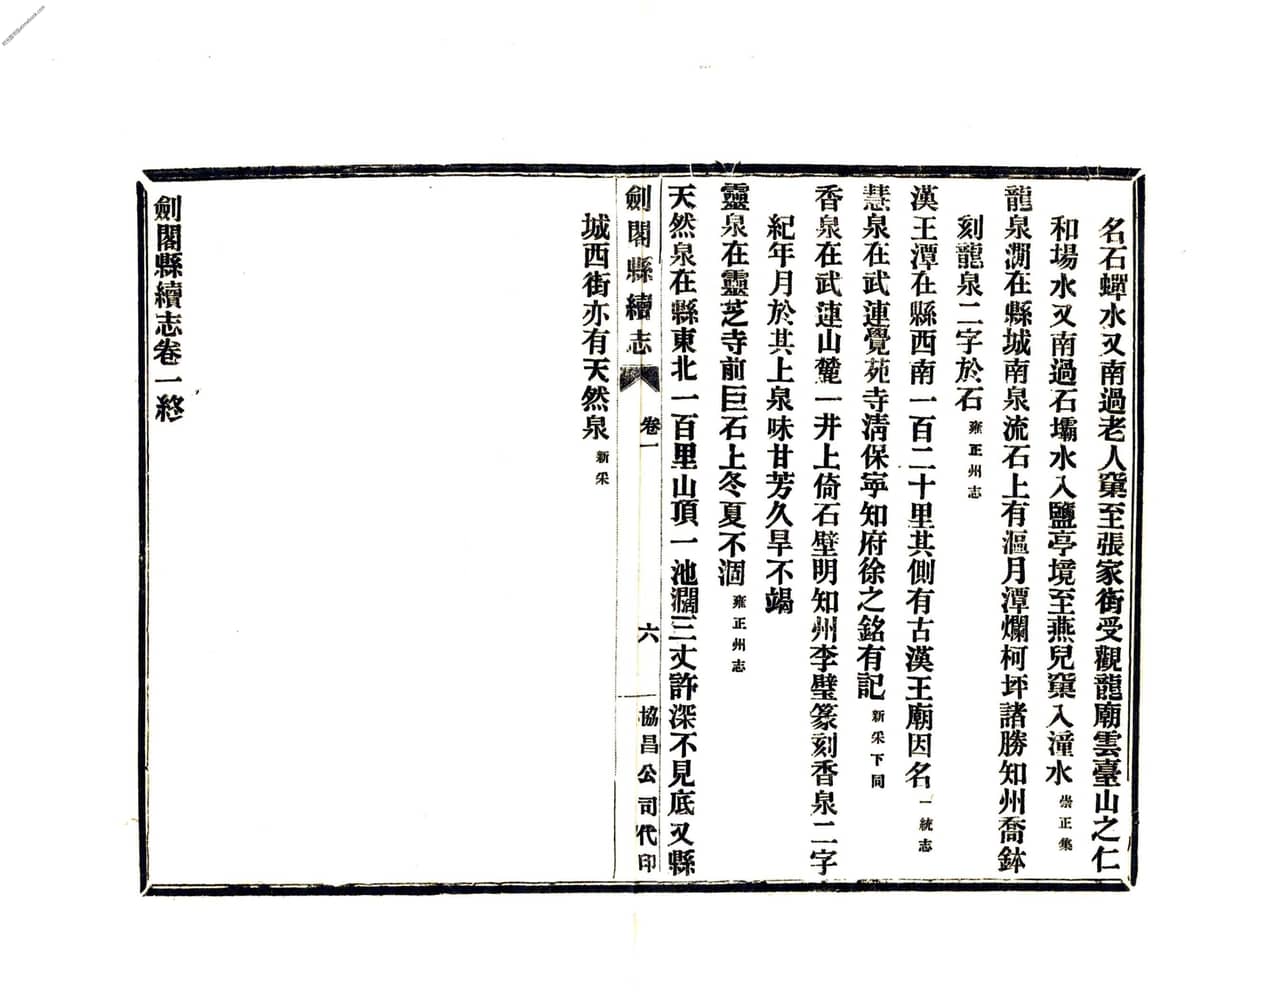 名石蟬水又南過老人窠至張家街受觀龍廟雲臺山之仁
和場水又南過石壩水入鹽亭境至燕兒窠入潼水 崇正集
龍泉澗在縣城南泉流石上有漚月潭爛柯坪諸勝知州喬鉢
刻龍泉二字於石 雍正州志
漢王潭在縣西南一百二十里其側有古漢王廟因名 一統志
慧泉在武連覺苑寺清保寧知府徐之銘有記 新采下同
香泉在武連山麓一井上倚石壁明知州李璧篆刻香泉二字
紀年月於其上泉味甘芳久旱不竭
靈泉在靈芝寺前巨石上冬夏不涸 雍正州志
天然泉在縣東北一百里山頂一池濶三丈許深不見底又縣
劍閣縣續志 卷一 六 協昌公司代印
城西街亦有天然泉 新采
劍閣縣續志卷一終